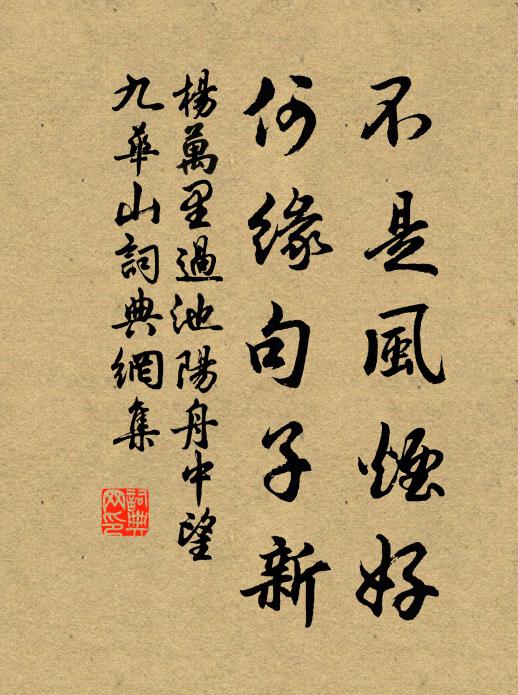 不是風煙好
何緣句子新
楊萬里過池陽舟中望
九華山詞典網集
詞典
网印